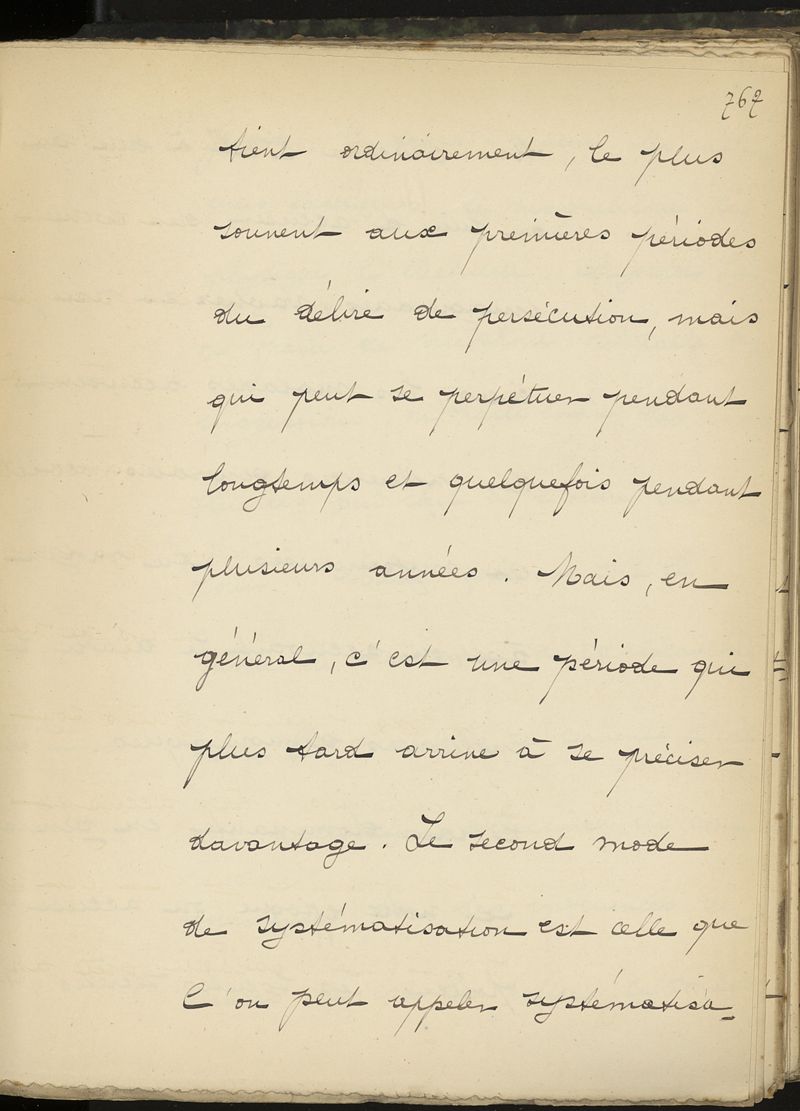 767
tient ordinairement, le plus
souvent aux premières périodes
du délire de persécution, mais
qui peut se perpétuer pendant
longtemps et quelquefois pendant
plusieurs années. Mais, en
général, c'est une période qui
plus tard arrive à se préciser
davantage. Le second mode
de systématisation est celle que
l'on peut appeler systématisa=